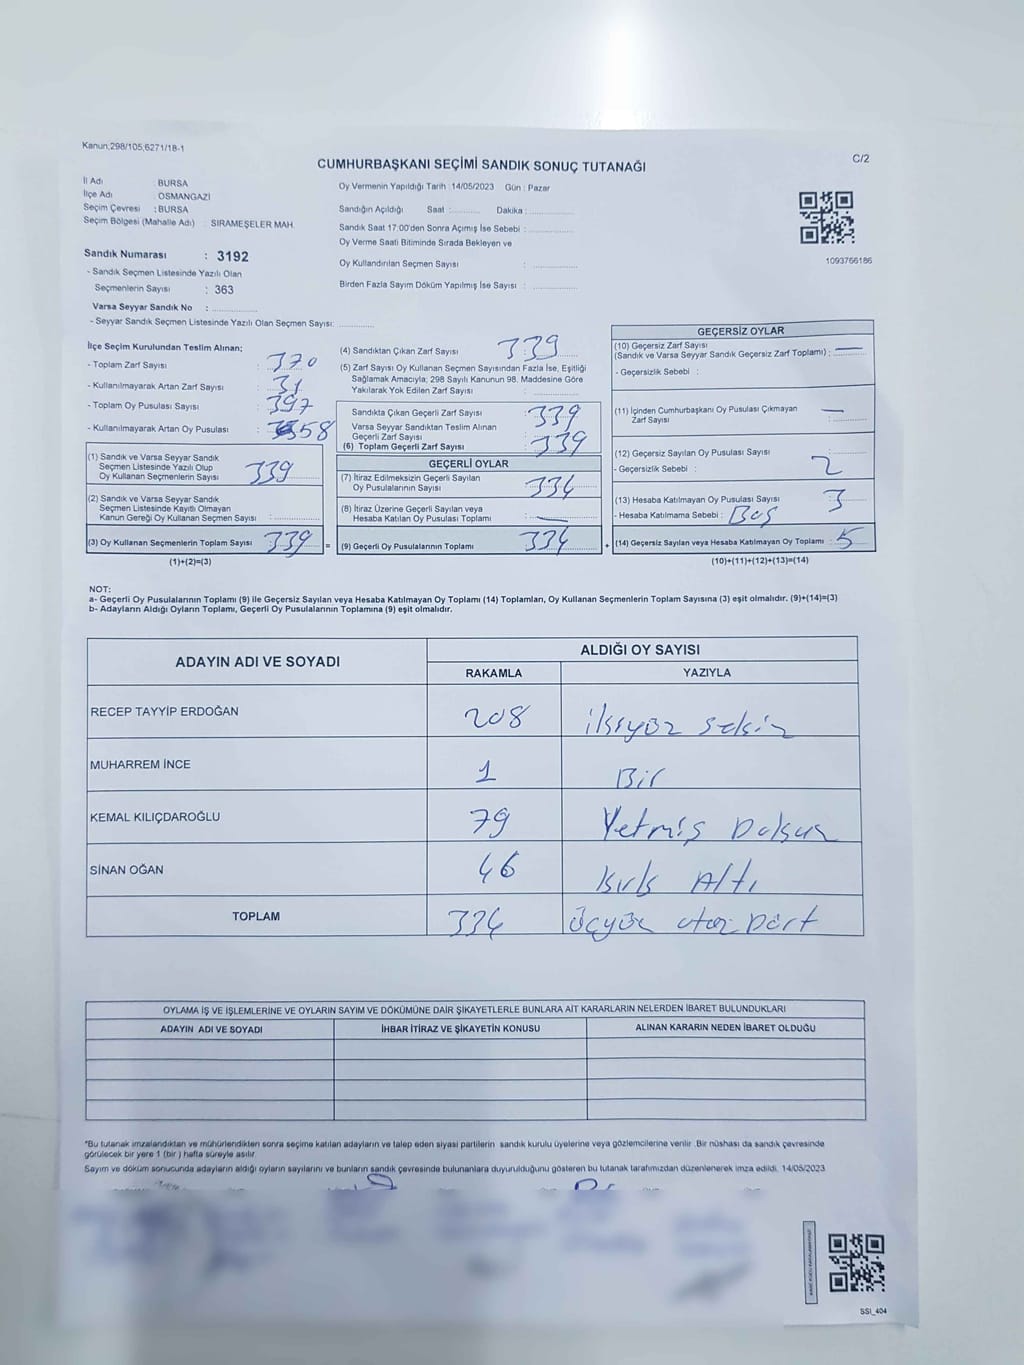 Kanun,298/105,6271/18-1
CUMHURBAŞKANI SEÇİMİ SANDIK SONUÇ TUTANAĞI
C/2
İl Adı BURSA
İlçe Adı OSMANGAZİ
Seçim Çevresi : BURSA
Seçim Bölgesi (Mahalle Adı) : SIRAMEŞELER MAH.
Sandık Numarası : 3192
- Sandık Seçmen Listesinde Yazılı Olan
Seçmenlerin Sayısı : 363
Varsa Seyyar Sandık No :
- Seyyar Sandık Seçmen Listesinde Yazılı Olan Seçmen Sayısı:
Oy Vermenin Yapıldığı Tarih : 14/05/2023 Gün : Pazar
Sandığın Açıldığı Saat : Dakika :
Sandık Saat 17:00'den Sonra Açımış İse Sebebi :
Oy Verme Saati Bitiminde Sırada Bekleyen ve
Oy Kullandırılan Seçmen Sayısı :
Birden Fazla Sayım Döküm Yapılmış İse Sayısı :
1093766186
İlçe Seçim Kurulundan Teslim Alınan;
- Toplam Zarf Sayısı : 370
- Kullanılmayarak Artan Zarf Sayısı : 31
- Toplam Oy Pusulası Sayısı : 397
- Kullanılmayarak Artan Oy Pusulası : 58
(1) Sandık ve Varsa Seyyar Sandık
Seçmen Listesinde Yazılı Olup
Oy Kullanan Seçmenlerin Sayısı : 339
(2) Sandık ve Varsa Seyyar Sandık
Seçmen Listesinde Kayıtlı Olmayan
Kanun Gereği Oy Kullanan Seçmen Sayısı :
(3) Oy Kullanan Seçmenlerin Toplam Sayısı : 339 =
(1)+(2)=(3)
(4) Sandıktan Çıkan Zarf Sayısı : 339
(5) Zarf Sayısı Oy Kullanan Seçmen Sayısından Fazla İse, Eşitliği
Sağlamak Amacıyla; 298 Sayılı Kanunun 98. Maddesine Göre
Yakılarak Yok Edilen Zarf Sayısı :
Sandıkta Çıkan Geçerli Zarf Sayısı : 339
Varsa Seyyar Sandıktan Teslim Alınan
Geçerli Zarf Sayısı :
(6) Toplam Geçerli Zarf Sayısı : 339
GEÇERLİ OYLAR
(7) İtiraz Edilmeksizin Geçerli Sayılan
Oy Pusulalarının Sayısı : 334
(8) İtiraz Üzerine Geçerli Sayılan veya
Hesaba Katılan Oy Pusulası Toplamı : —
(9) Geçerli Oy Pusulalarının Toplamı : 334 +
GEÇERSİZ OYLAR
(10) Geçersiz Zarf Sayısı
(Sandık ve Varsa Seyyar Sandık Geçersiz Zarf Toplamı) : —
- Geçersizlik Sebebi :
(11) İçinden Cumhurbaşkanı Oy Pusulası Çıkmayan
Zarf Sayısı : —
(12) Geçersiz Sayılan Oy Pusulası Sayısı : 2
- Geçersizlik Sebebi :
(13) Hesaba Katılmayan Oy Pusulası Sayısı : 3
- Hesaba Katılmama Sebebi : Boş
(14) Geçersiz Sayılan veya Hesaba Katılmayan Oy Toplamı : 5
(10)+(11)+(12)+(13)=(14)
NOT:
a- Geçerli Oy Pusulalarının Toplamı (9) ile Geçersiz Sayılan veya Hesaba Katılmayan Oy Toplamı (14) Toplamları, Oy Kullanan Seçmenlerin Toplam Sayısına (3) eşit olmalıdır. (9)+(14)=(3)
b- Adayların Aldığı Oyların Toplamı, Geçerli Oy Pusulalarının Toplamına (9) eşit olmalıdır.
ADAYIN ADI VE SOYADI ALDIĞI OY SAYISI
RAKAMLA YAZIYLA
RECEP TAYYİP ERDOĞAN 208 ikiyüz sekiz
MUHARREM İNCE 1 Bir
KEMAL KILIÇDAROĞLU 79 Yetmiş Dokuz
SİNAN OĞAN 46 kırk Altı
TOPLAM 334 Üçyüz otuz Dört
OYLAMA İŞ VE İŞLEMLERİNE VE OYLARIN SAYIM VE DÖKÜMÜNE DAİR ŞİKAYETLERLE BUNLARA AİT KARARLARIN NELERDEN İBARET BULUNDUKLARI
ADAYIN ADI VE SOYADI İHBAR İTİRAZ VE ŞİKAYETİN KONUSU ALINAN KARARIN NEDEN İBARET OLDUĞU
*Bu tutanak imzalandıktan ve mühürlendikten sonra seçime katılan adayların ve talep eden siyasi partilerin sandık kurulu üyelerine veya gözlemcilerine verilir. Bir nüshası da sandık çevresinde
görülecek bir yere 1 (bir ) hafta süreyle asılır.
Sayım ve döküm sonucunda adayların aldığı oyların sayılarını ve bunların sandık çevresinde bulunanlara duyurulduğunu gösteren bu tutanak tarafımızdan düzenlenerek imza edildi. 14/05/2023
SSI_404